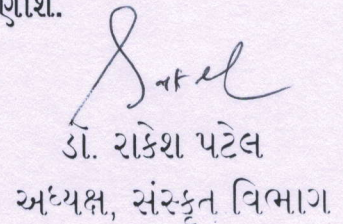 ડૉ. રાકેશ પટેલ
અધ્યક્ષ, સંસ્કૃત વિભાગ